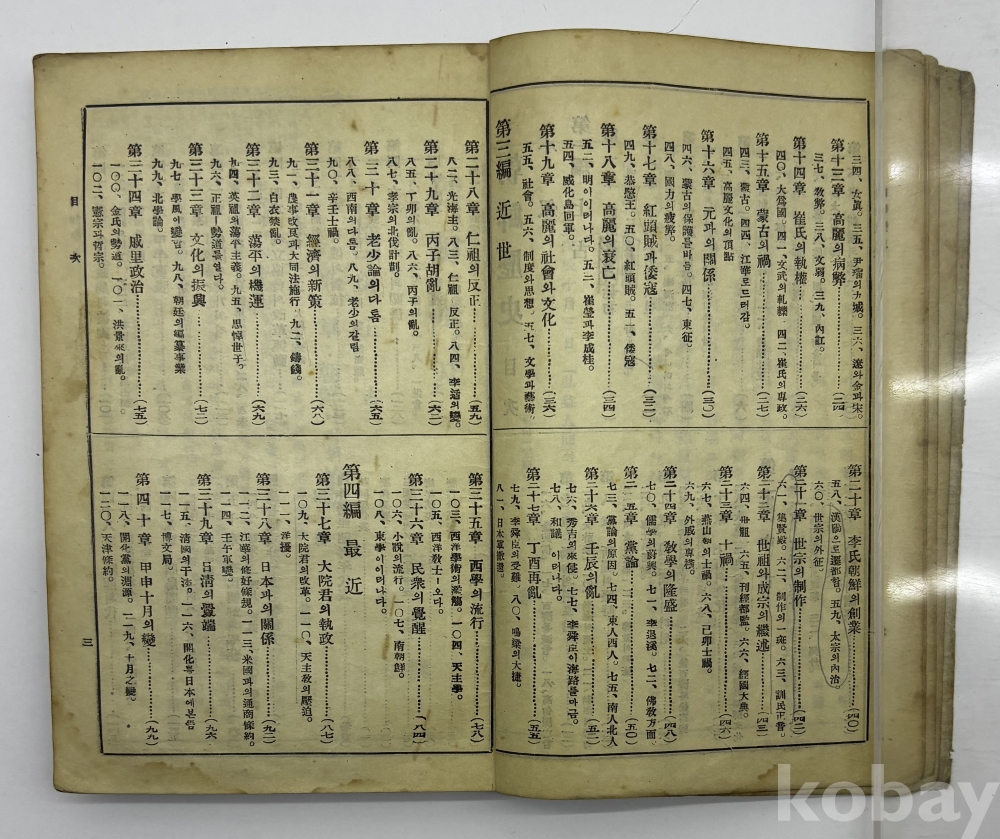 三四、女眞。三五、尹瓘의九城。三六、遼와金과宋。
第十三章 高麗의病弊……(二四)
三七、敎弊。三八、文弱。三九、內訌。
第十四章 崔氏의執權……(二六)
四〇、大爲國 四一、文武의軋轢 四二、崔氏의專政。
第十五章 蒙古의禍……(二七)
四三、蒙古。四四、江華로드러감。
四五、高麗文化의頂點
第十六章 元과의關係……(三〇)
四六、蒙古의保護를바듬。四七、東征。
四八、國力의疲弊。
第十七章 紅頭賊과倭寇……(三二)
四九、恭愍王。五〇、紅頭賊。五一、倭寇
第十八章 高麗의衰亡……(三四)
五二、明이이러나다。五三、崔瑩과李成桂。
五四、威化島回軍。
第十九章 高麗의社會와文化……(三六)
五五、社會。五六、制度와思想。五七、文學과藝術。
第三編 近世
第二十章 李氏朝鮮의創業……(四〇)
五八、漢陽으로還都함。五九、太宗의內治。
六〇、世宗의外征。
第二十一章 世宗의制作……(四二)
六一、集賢殿。六二、制作의一斑。六三、訓民正音。
第二十二章 世祖와成宗의繼述……(四三)
六四、世祖。六五、刊經都監。六六、經國大典。
第二十三章 士禍……(四六)
六七、燕山朝의士禍。六八、己卯士禍。
六九、外戚의專橫。
第二十四章 敎學의隆盛……(四八)
七〇、儒學의蔚興。七一、李退溪。七二、佛敎方面。
第二十五章 黨論……(五〇)
七三、黨論의原因。七四、東人西人。七五、南人北人
第二十六章 壬辰의亂……(五二)
七六、秀吉의來侵。七七、李舜臣이海路를마금。
七八、和議 이러나다。
第二十七章 丁酉再亂……(五五)
七九、李舜臣의受難。八〇、鳴梁의大捷。
八一、日本軍撤還。
第二十八章 仁祖의反正……(五九)
八二、光海主。八三、仁祖 反正。八四、李适의變。
第二十九章 丙子胡亂……(六二)
八五、丁卯의亂。八六、丙子의亂。
八七、孝宗의北伐計劃。
第三十章 老少論의다툼……(六五)
八八、西南의다툼。八九、老少의갈림
九〇、辛壬士禍
第三十一章 經濟의新策……(六八)
九一、農事改良과大同法施行 九二、鑄錢。
九三、白衣禁亂。
第三十二章 蕩平의機運……(六九)
九四、英祖의蕩平主義。九五、思悼世子。
九六、正祖ㅣ世道를열다。
第三十三章 文化의振興……(七二)
九七、學風이變함。九八、朝廷의編纂事業
九九、北學論。
第三十四章 戚里政治……(七五)
一〇〇、金氏의勢道。一〇一、洪景來의亂。
一〇二、憲宗과哲宗。
第三十五章 西學의流行……(七八)
一〇三、西洋學術의濫觴。一〇四、天主學。
一〇五、西洋敎士ㅣ오다。
第三十六章 民衆의覺醒……(八四)
一〇六、小說의流行。一〇七、南朝鮮。
一〇八、東學이이러나다。
第四編 最近
第三十七章 大院君의執政……(八七)
一〇九、大院君의改革。一一〇、天主敎의壓迫。
一一一、洋擾。
第三十八章 日本과의關係……(九二)
一一二、江華의修好條規。一一三、米國과의通商條約。
一一四、壬午軍變。
第三十九章 日淸의釁端……(九六)
一一五、淸國의干涉。一一六、開化를日本에본뜸
一一七、博文局。
第四十章 甲申十月의變……(九九)
一一八、開化黨의淵源。一一九、十月之變。
一二〇、天津條約。
目次
三
kobay